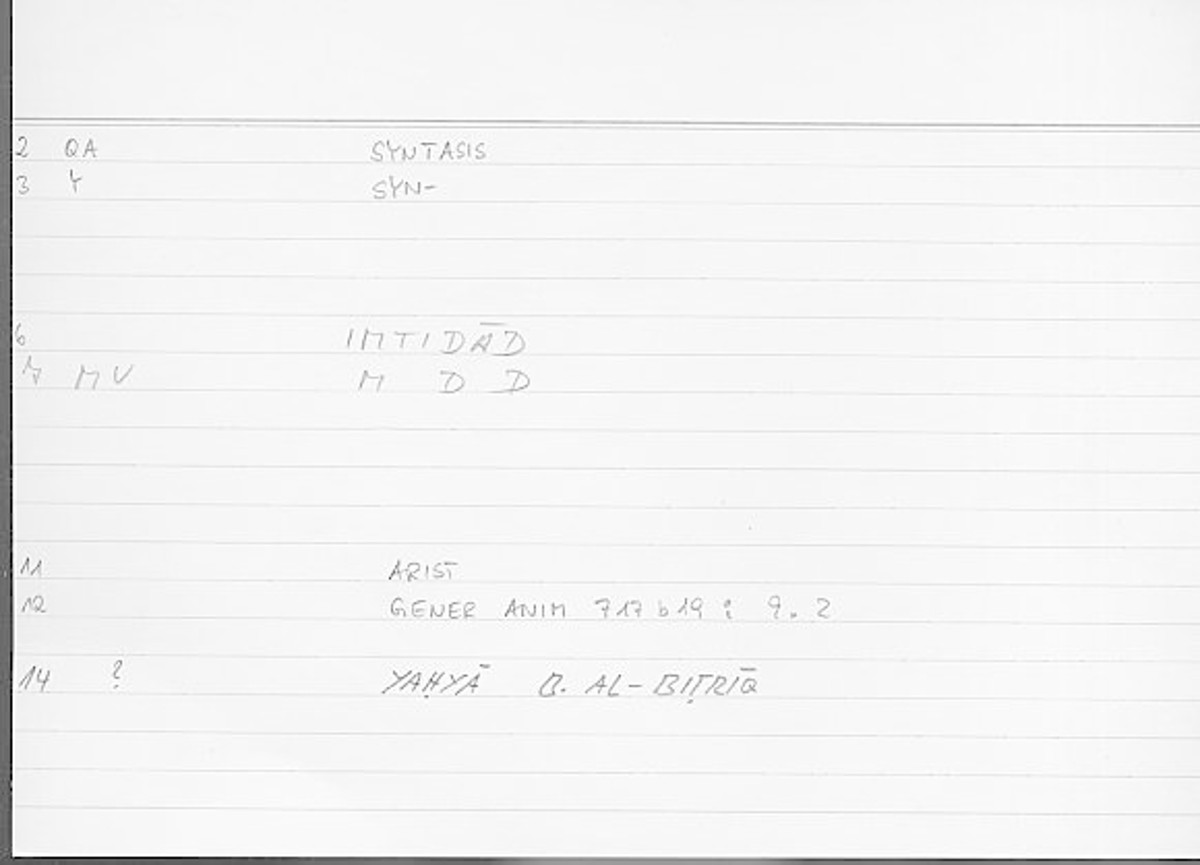 2 QA SYNTASIS
3 Y SYN-
6 IMTIDĀD
7 MV M D D
11 ARIST
12 GENER ANIM 717 b 19 : 9. 2
14 ? YAḤYĀ B. AL-BIṬRĪQ